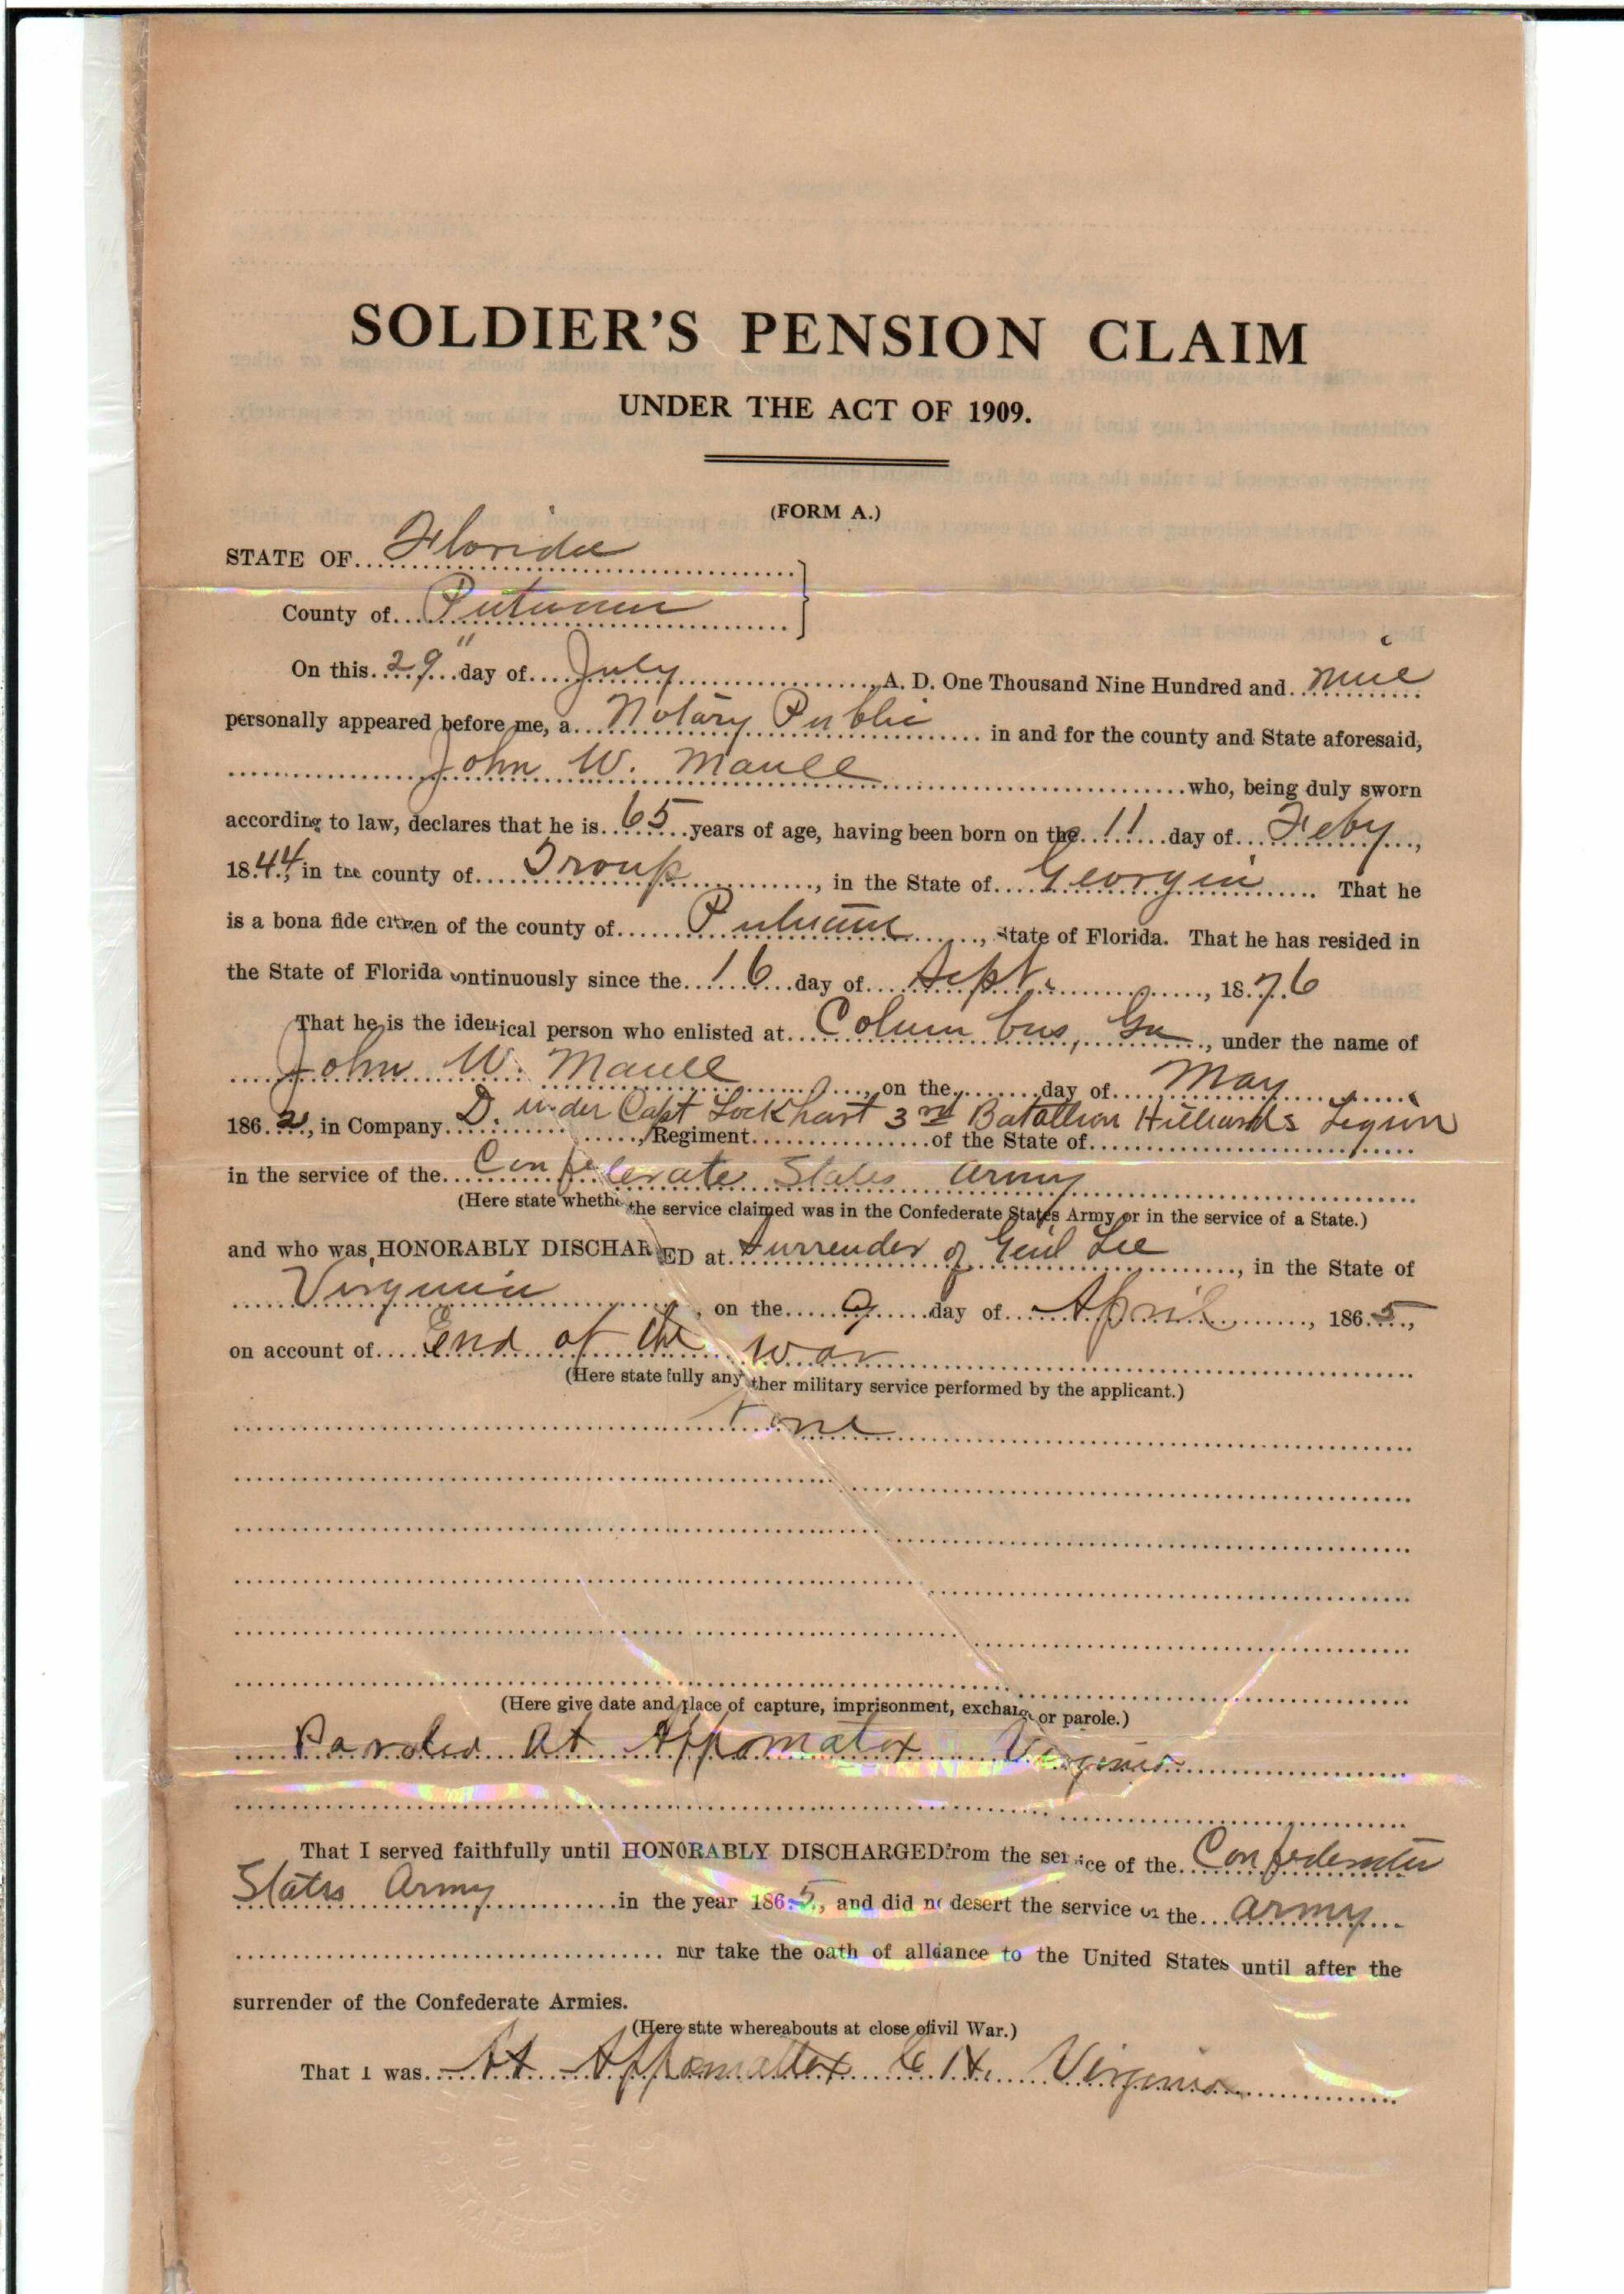 SOLDIER'S PENSION CLAIM
UNDER THE ACT OF 1909.
(FORM A.)
STATE OF Florida
County of Putnam
On this 29" day of July A. D. One Thousand Nine Hundred and nine
personally appeared before me, a Notary Public in and for the county and State aforesaid,
John W. Maull who, being duly sworn
according to law, declares that he is 65 years of age, having been born on the 11 day of Feby,
1844, in the county of Troup, in the State of Georgia. That he
is a bona fide citizen of the county of Putnam, State of Florida. That he has resided in
the State of Florida continuously since the 16 day of Sept., 1876
That he is the identical person who enlisted at Columbus, Ga, under the name of
John W. Maull, on the day of May
1862, in Company D. under Capt Lockhart 3rd Batallion Hilliards Legion
Regiment of the State of
in the service of the Confederate States Army
(Here state whether the service claimed was in the Confederate States Army or in the service of a State.)
and who was HONORABLY DISCHARGED at Surrender of Genl Lee, in the State of
Virginia, on the 9 day of April, 1865,
on account of End of the War
(Here state fully any other military service performed by the applicant.)
None
(Here give date and place of capture, imprisonment, exchange or parole.)
Paroled At Appomatox Virginia
That I served faithfully until HONORABLY DISCHARGED from the service of the Confederate
States Army in the year 1865, and did not desert the service of the Army
nor take the oath of allegiance to the United States until after the
surrender of the Confederate Armies.
(Here state whereabouts at close of Civil War.)
That I was At Appomattox C. H. Virginia